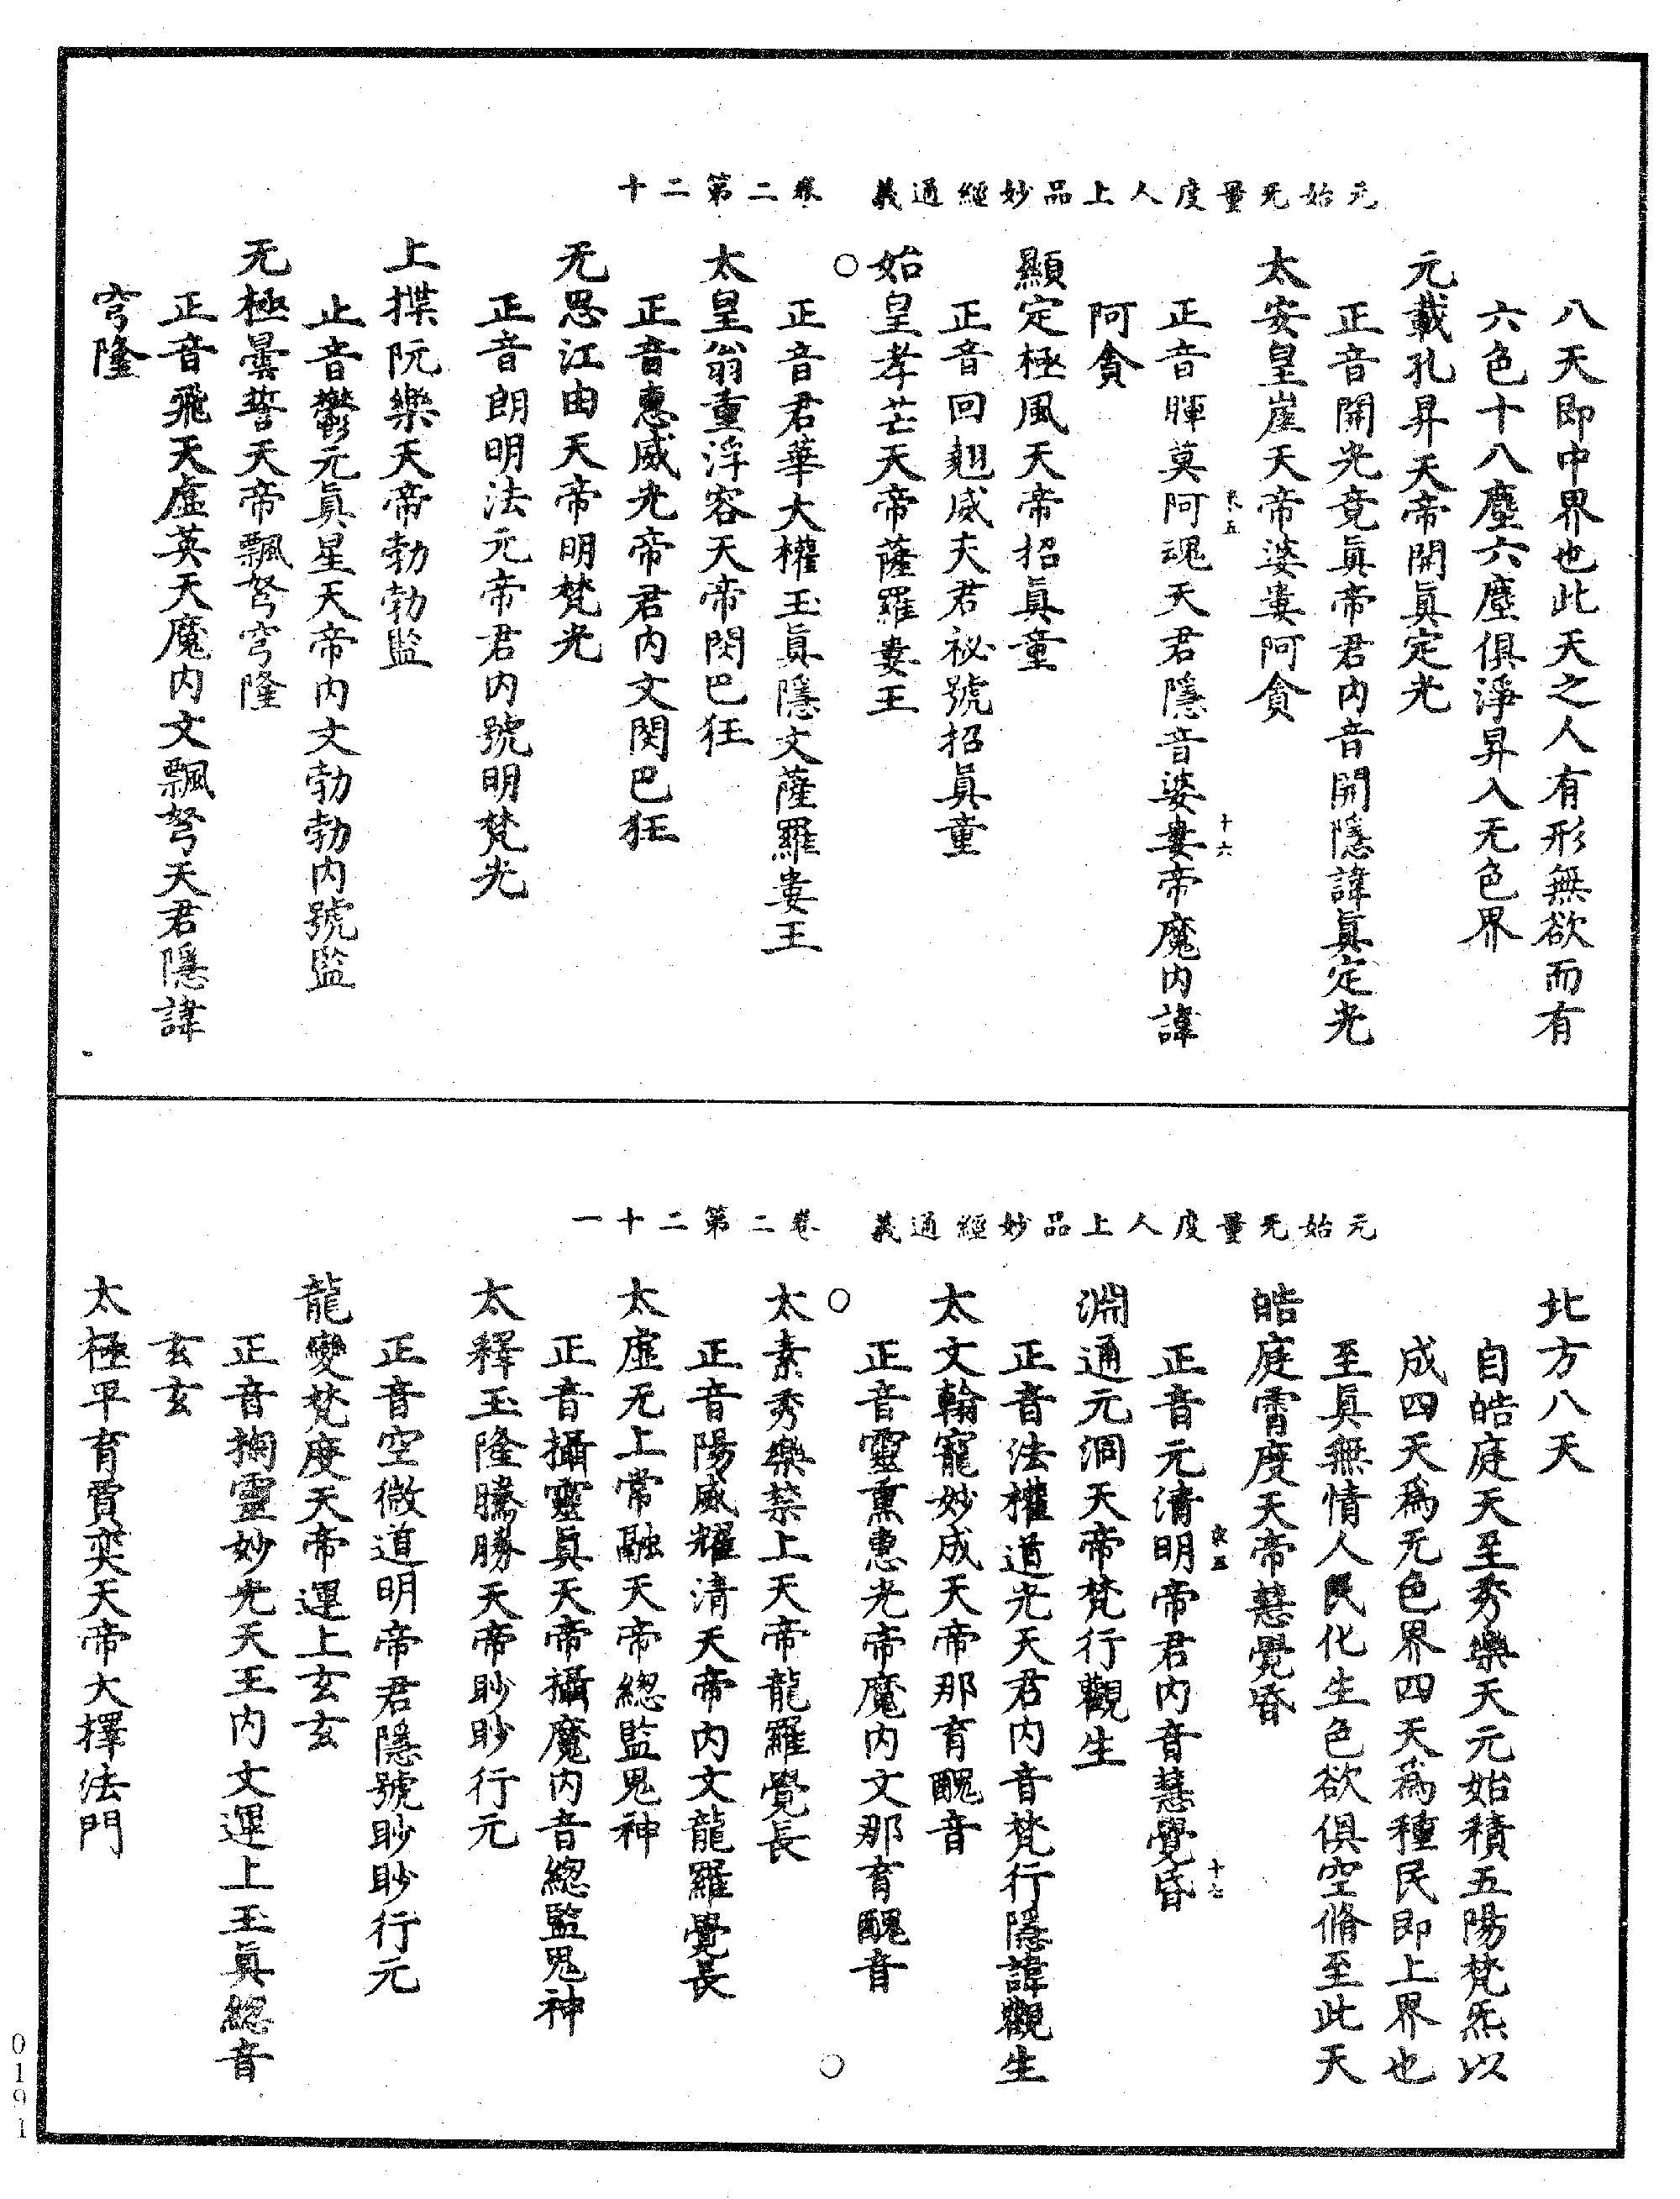 元始无量度人上品妙經通義　卷二第二十
八天即中界也此天之人有形無欲而有
六色十八塵六塵俱淨昇入无色界
元載孔昇天帝開眞定光
正音開光竟眞帝君内音開隱諱眞定光
太安皇崖天帝婆婁阿貪
正音暉莫阿魂天君隱音婆婁帝魔内諱
阿貪
顯定極風天帝招眞童
正音回翅威夫君祕號招眞童
始皇孝芒天帝薩羅婁王
○
正音君華大權玉眞隱文薩羅婁王
太皇翁重浮容天帝閔巴狂
正音惠威光帝君内文閔巴狂
无思江由天帝明梵光
正音朗明法元帝君内號明梵光
上揲阮樂天帝勃勃監
正音鬱元眞星天帝内文勃勃内號監
无極曇誓天帝飄弩穹隆
正音飛天虛英天魔内文飄弩天君隱諱
穹隆
元始无量度人上品妙經通義　卷二第二十一
北方八天
自皓庭天至秀樂天元始積五陽梵炁以
成四天爲无色界四天爲種民即上界也
至眞無情人民化生色欲俱空脩至此天
皓庭霄度天帝慧覺昏
正音元清明帝君内音慧覺昏
十七
淵通元洞天帝梵行觀生
正音法權道光天君内音梵行隱諱觀生
太文翰寵妙成天帝那育醜音
正音靈熏惠光帝魔内文那育醜音
○
○
太素秀樂禁上天帝龍羅覺長
正音陽威耀清天帝内文龍羅覺長
太虛无上常融天帝總監鬼神
正音攝靈眞天帝攝魔内音總監鬼神
太釋玉隆騰勝天帝眇眇行元
正音空微道明帝君隱號眇眇行元
龍變梵度天帝運上玄玄
正音掬靈妙光天王内文運上玉眞總音
玄玄
太極平育賈奕天帝大擇法門
0191